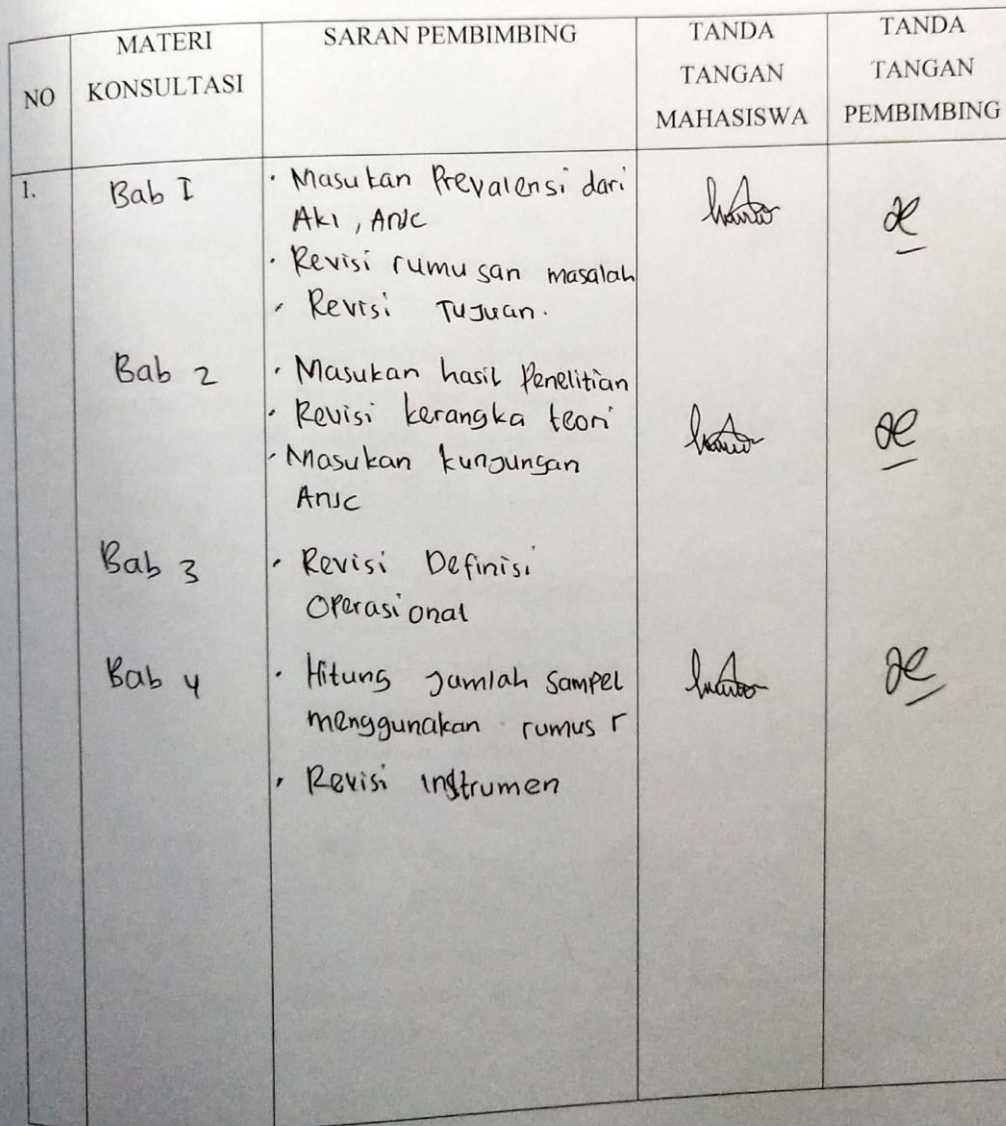 NO
MATERI
KONSULTASI
SARAN PEMBIMBING
TANDA
TANGAN
MAHASISWA
TANDA
TANGAN
PEMBIMBING
1.
Bab I
• Masukan Prevalensi dari
AKI, ANC
• Revisi rumusan masalah
• Revisi Tujuan.
Bab 2
• Masukan hasil Penelitian
• Revisi kerangka teori
• Masukan kunjungan
ANC
Bab 3
• Revisi Definisi
Operasional
Bab 4
• Hitung Jumlah Sampel
menggunakan rumus r
• Revisi instrumen